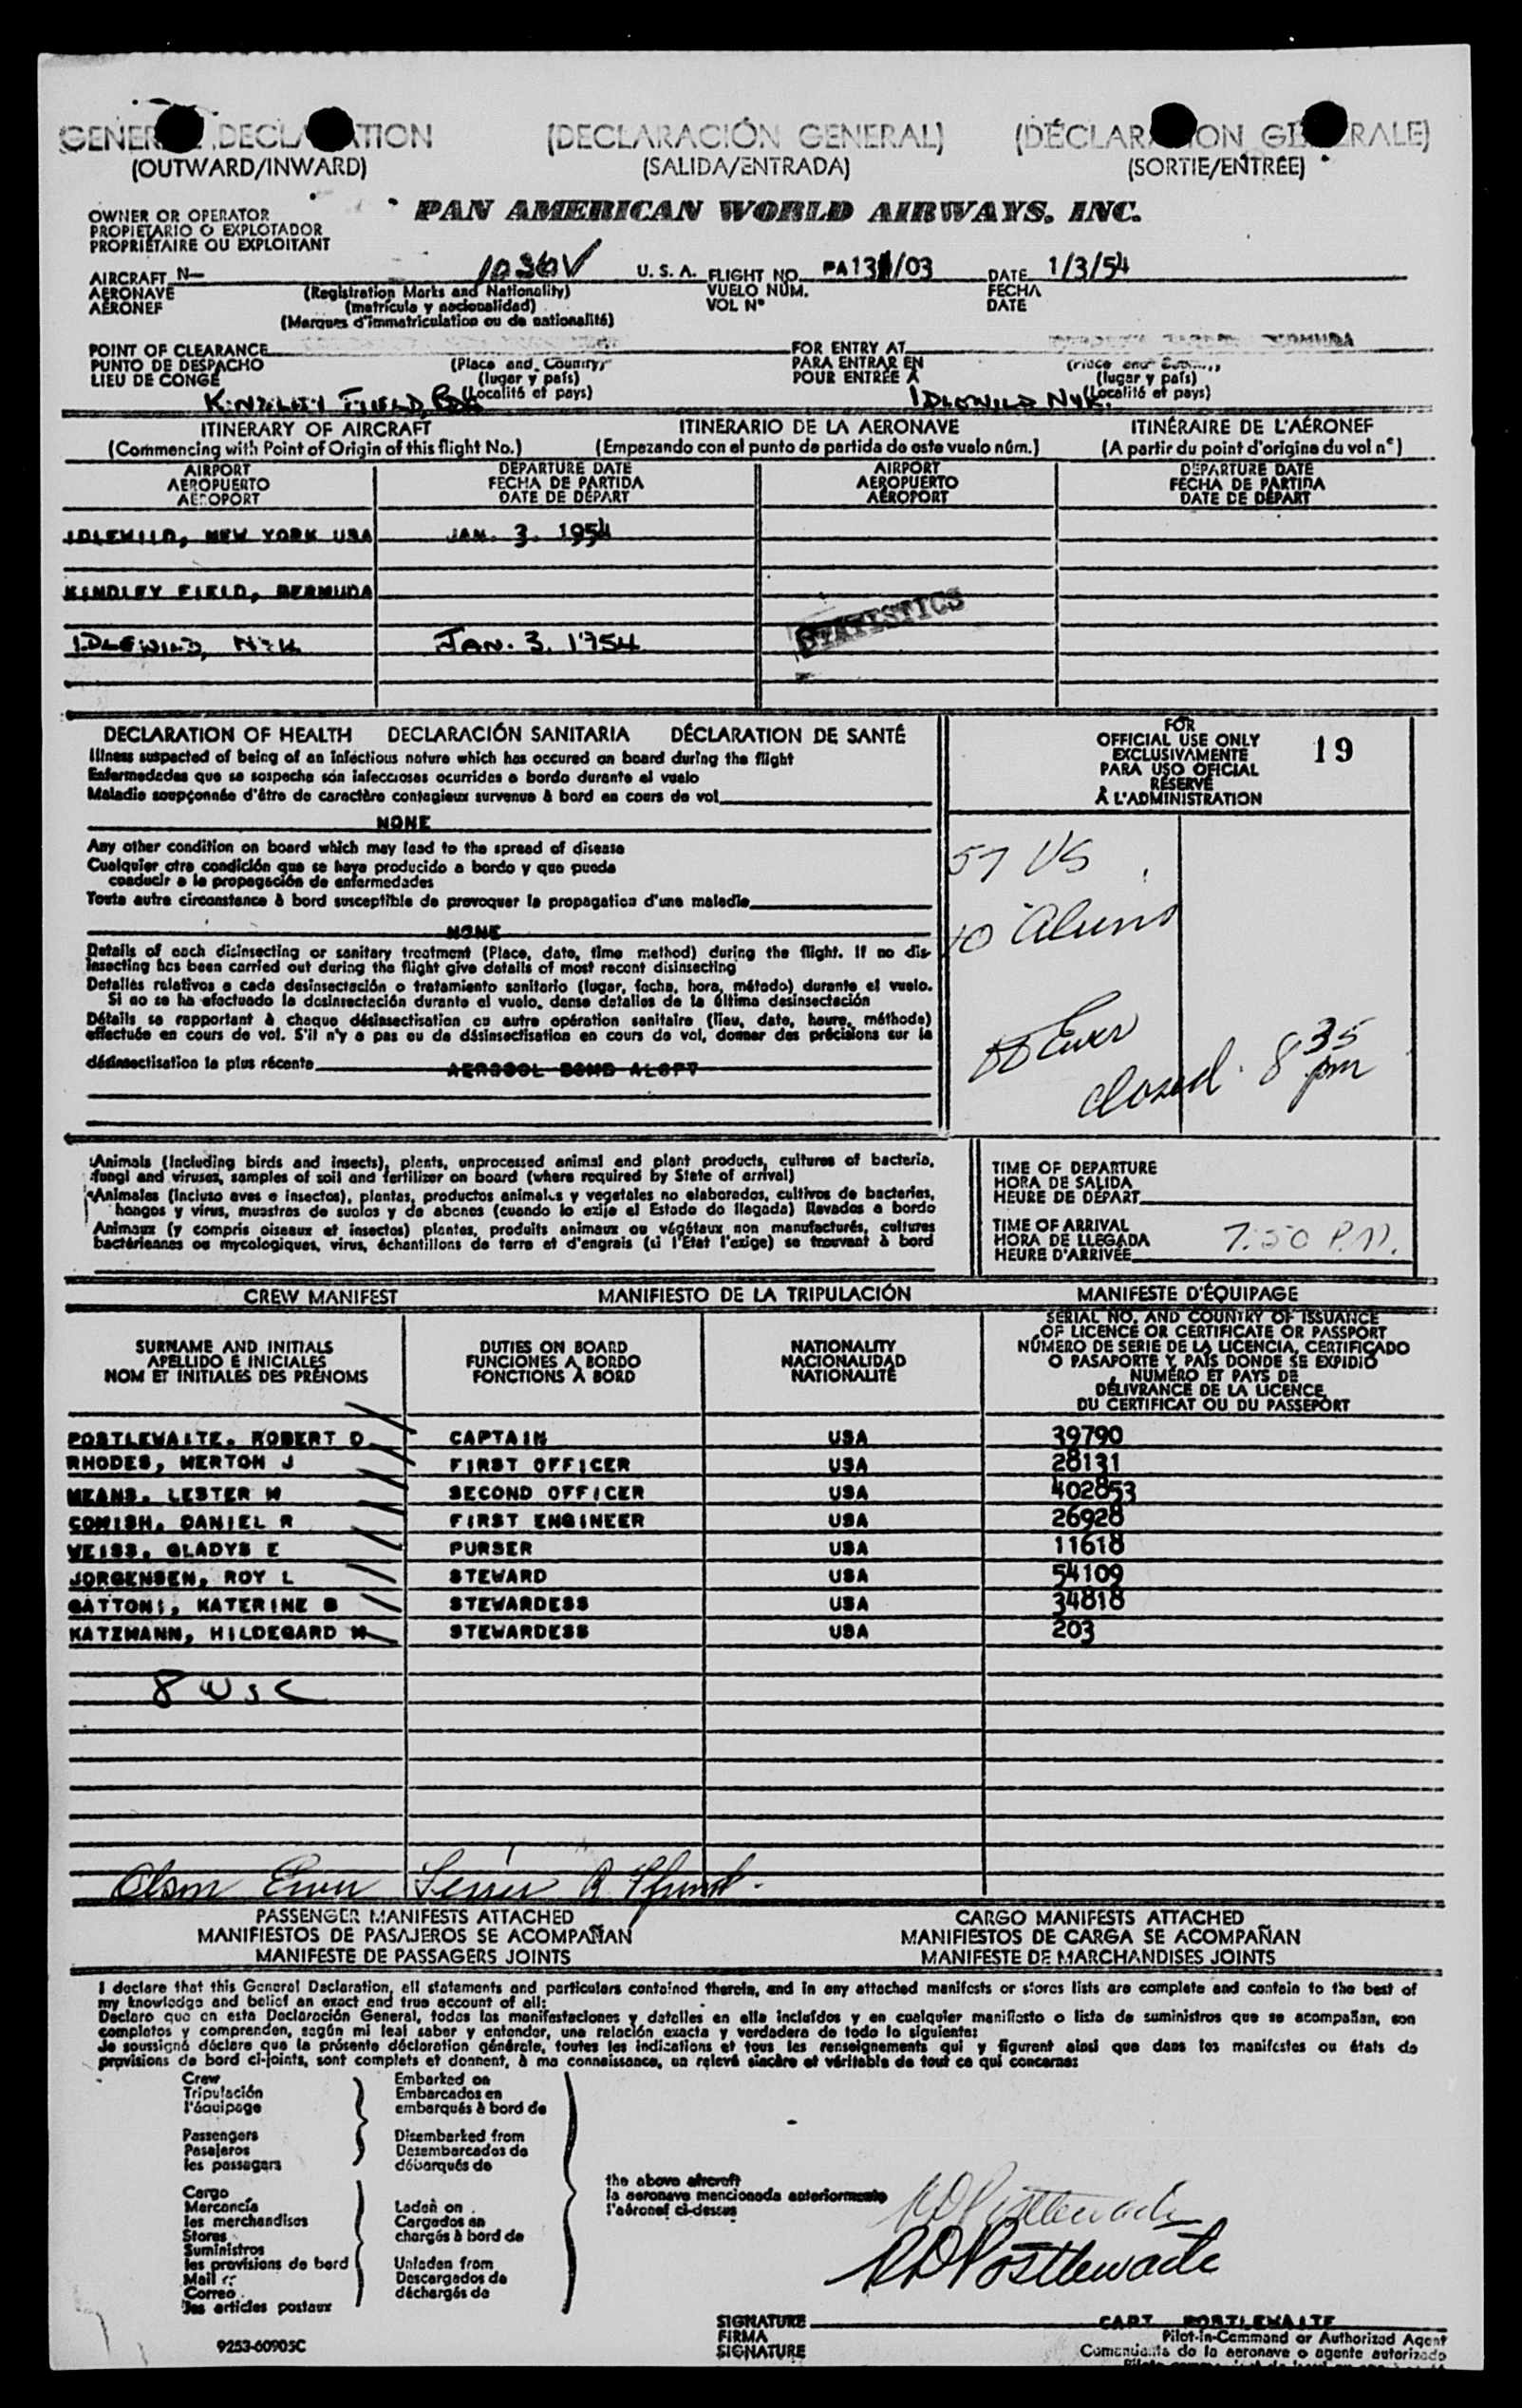 GENER DECL TION (DECLARACIÓN GENERAL) (DÉCLAR ON G RALE)
(OUTWARD/INWARD) (SALIDA/ENTRADA) (SORTIE/ENTRÉE)
OWNER OR OPERATOR
PROPIETARIO O EXPLOTADOR
PROPRIÉTAIRE OU EXPLOITANT
PAN AMERICAN WORLD AIRWAYS, INC.
AIRCRAFT N— 1036V U. S. A. FLIGHT NO. PA13 /03 DATE 1/3/54
AERONAVE (Registration Marks and Nationality) VUELO NUM. FECHA
AÉRONEF (matrícula y nacionalidad) VOL N° DATE
(Marques d'immatriculation ou de nationalité)
POINT OF CLEARANCE FOR ENTRY AT
PUNTO DE DESPACHO (Place and Country) PARA ENTRAR EN
LIEU DE CONGÉ (lugar y país) POUR ENTRÉE A (lugar y país)
KINDLEY FIELD, BDA (Localité et pays) IDLEWILD NYK. (Localité et pays)
ITINERARY OF AIRCRAFT ITINERARIO DE LA AERONAVE ITINÉRAIRE DE L'AÉRONEF
(Commencing with Point of Origin of this flight No.) (Empezando con el punto de partida de este vuelo núm.) (A partir du point d'origine du vol n°)
AIRPORT DEPARTURE DATE AIRPORT DEPARTURE DATE
AEROPUERTO FECHA DE PARTIDA AEROPUERTO FECHA DE PARTIDA
AÉROPORT DATE DE DÉPART AÉROPORT DATE DE DÉPART
IDLEWILD, NEW YORK USA JAN. 3. 1954
KINDLEY FIELD, BERMUDA
STATISTICS
IDLEWILD, NYK JAN. 3. 1954
DECLARATION OF HEALTH DECLARACIÓN SANITARIA DÉCLARATION DE SANTÉ
Illness suspected of being of an infectious nature which has occured on board during the flight
Enfermedades que se sospecha són infecciosas ocurridas a bordo durante el vuelo
Maladie soupçonnée d'être de caractère contagieux survenue à bord en cours de vol
NONE
Any other condition on board which may lead to the spread of disease
Cualquier otra condición que se haya producido a bordo y que pueda
conducir a la propagación de enfermedades
Toute autre circonstance à bord susceptible de provoquer la propagation d'une maladie
NONE
Details of each disinsecting or sanitary treatment (Place, date, time method) during the flight. If no dis-
insecting has been carried out during the flight give details of most recent disinsecting
Detalles relativos a cada desinsectación o tratamiento sanitario (lugar, fecha, hora, método) durante el vuelo.
Si no se ha efectuado la desinsectación durante el vuelo, dense detalles de la última desinsectación
Détails se rapportant à chaque désinsectisation ou autre opération sanitaire (lieu, date, heure, méthode)
effectuée en cours de vol. S'il n'y a pas eu de désinsectisation en cours de vol, donner des précisions sur la
désinsectisation la plus récente AEROSOL BOMB ALOFT
FOR
OFFICIAL USE ONLY
EXCLUSIVAMENTE
PARA USO OFICIAL
RÉSERVÉ
À L'ADMINISTRATION
19
57 US
10 Aliens
closed 8 35 pm
Animals (Including birds and insects), plents, unprocessed animal and plant products, cultures of bacteria,
fungi and viruses, samples of soil and fertilizer on board (where required by State of arrival)
Animales (incluso aves e insectos), plantas, productos animales y vegetales no elaborados, cultivos de bacterias,
hongos y virus, muestras de suelos y de abonos (cuando lo exije el Estado do llegada) llevados a bordo
Animaux (y compris oiseaux et insectos) plantes, produits animaux ou végétaux non manufacturés, cultures
bactériennes ou mycologiques, virus, échantillons de terre et d'engrais (si l'Etat l'exige) se trouvant à bord
TIME OF DEPARTURE
HORA DE SALIDA
HEURE DE DÉPART
TIME OF ARRIVAL
HORA DE LLEGADA
HEURE D'ARRIVÉE 7:50 P.M.
CREW MANIFEST MANIFIESTO DE LA TRIPULACIÓN MANIFESTE D'ÉQUIPAGE
SURNAME AND INITIALS
APELLIDO E INICIALES
NOM ET INITIALES DES PRÉNOMS
DUTIES ON BOARD
FUNCIONES A BORDO
FONCTIONS À BORD
NATIONALITY
NACIONALIDAD
NATIONALITÉ
SERIAL NO. AND COUNTRY OF ISSUANCE
OF LICENCE OR CERTIFICATE OR PASSPORT
NÚMERO DE SERIE DE LA LICENCIA, CERTIFICADO
O PASAPORTE Y PAÍS DONDE SE EXPIDIÓ
NUMÉRO ET PAYS DE
DÉLIVRANCE DE LA LICENCE,
DU CERTIFICAT OU DU PASSEPORT
POSTLEWAITE, ROBERT D CAPTAIN USA 39790
RHODES, MERTON J FIRST OFFICER USA 28131
MEANS, LESTER W SECOND OFFICER USA 402853
COMISH, DANIEL R FIRST ENGINEER USA 26928
WEISS, GLADYS E PURSER USA 11618
JORGENSEN, ROY L STEWARD USA 54109
GATTONI, KATERINE B STEWARDESS USA 34818
KATZMANN, HILDEGARD M STEWARDESS USA 203
8 WSC
Olson
PASSENGER MANIFESTS ATTACHED CARGO MANIFESTS ATTACHED
MANIFIESTOS DE PASAJEROS SE ACOMPAÑAN MANIFIESTOS DE CARGA SE ACOMPAÑAN
MANIFESTE DE PASSAGERS JOINTS MANIFESTE DE MARCHANDISES JOINTS
I declare that this General Declaration, all statements and particulars contained therein, and in any attached manifests or stores lists are complete and contain to the best of
my knowledge and belief an exact and true account of all:
Declaro que en esta Declaración General, todas las manifestaciones y datalles en ella incluídos y en cualquier manifiesto o lista de suministros que se acompañan, son
completos y comprenden, según mi leal saber y entender, una relación exacta y verdadera de todo lo siguiente:
Je soussigné déclare que la présente déclaration générale, toutes les indications et tous les renseignements qui y figurent ainsi que dans los manifestes ou états de
provisions de bord ci-joints, sont complets et donnent, à ma connaissance, un relevé sincère et véritable de tout ce qui concerne:
Crew Embarked on
Tripulación Embarcados en
l'équipage embarqués à bord de
Passengers Disembarked from
Pasajeros Desembarcados de
les passagers débarqués de
the above aircraft
la aeronave mencionada anteriormente
l'aéronef ci-dessus
Cargo
Mercancía Laden on
les merchandises Cargados en
Stores chargés à bord de
Suministros
les provisions de bord Unladen from
Mail Descargados de
Correo déchargés de
les articles postaux
RD Postlewaite
RD Postlewaite
SIGNATURE CAPT POSTLEWAITE
FIRMA Pilot-in-Command or Authorized Agent
SIGNATURE Comandante de la aeronave o agente autorizado
9253-60905C